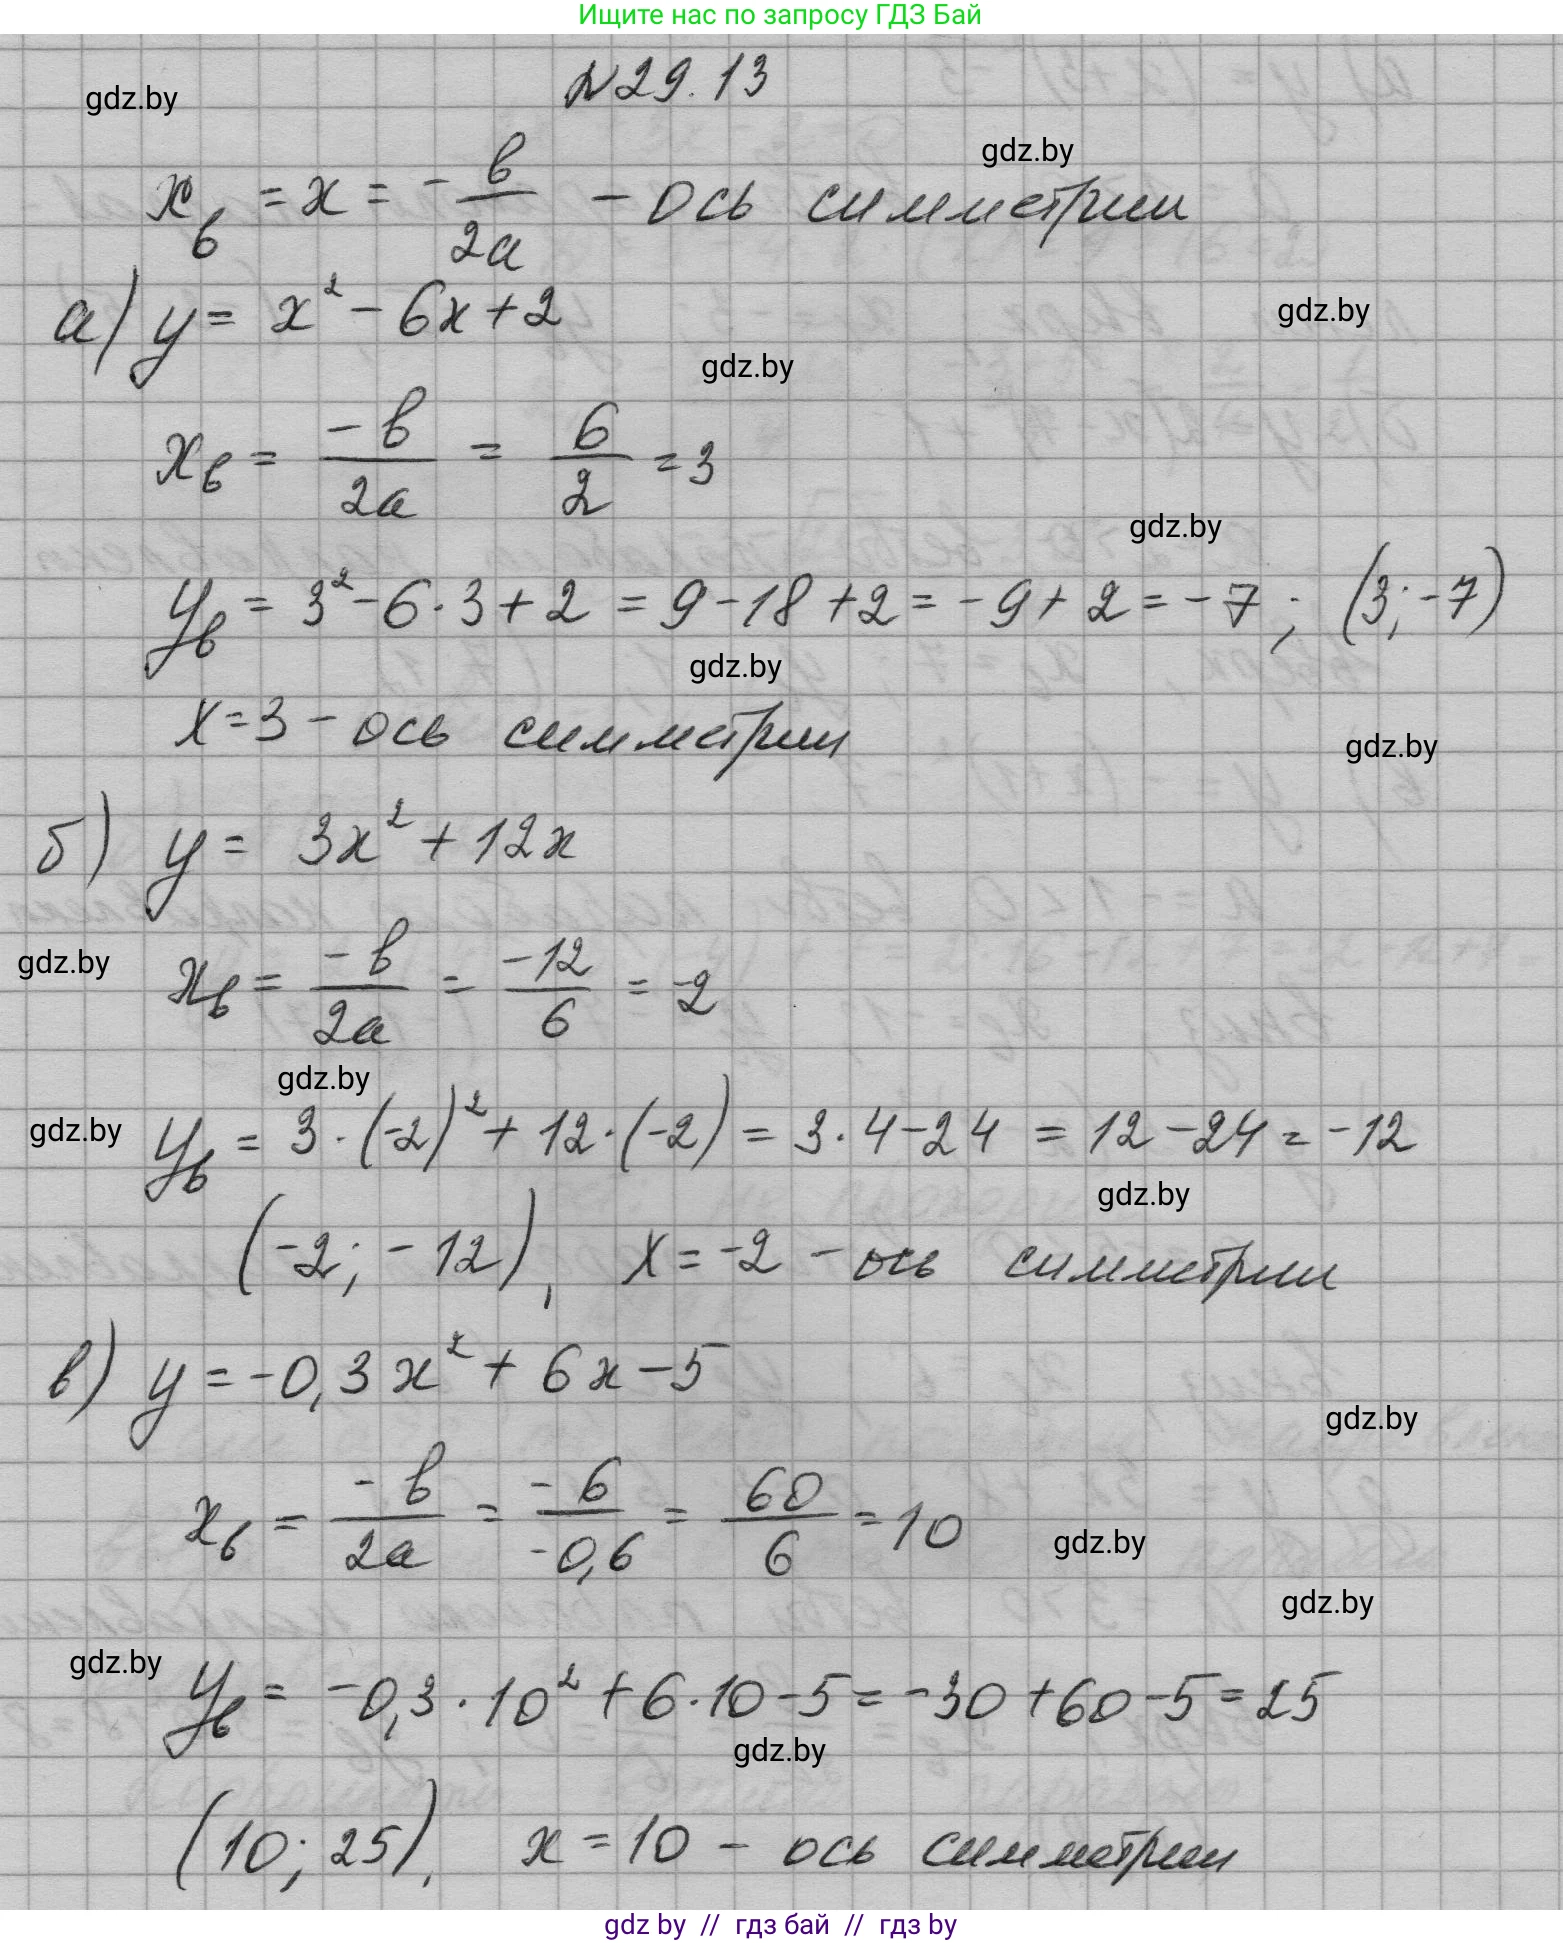 Ищите нас по запросу ГДЗ Бай
№29.13
gdz.by
gdz.by
x_в = x = -в/2a - ось симметрии
а) y = x² - 6x + 2
gdz.by
gdz.by
x_в = -в/2a = 6/2 = 3
gdz.by
y_в = 3² - 6·3 + 2 = 9 - 18 + 2 = -9 + 2 = -7; (3; -7)
gdz.by
x = 3 - ось симметрии
gdz.by
б) y = 3x² + 12x
gdz.by
x_в = -в/2a = -12/6 = -2
gdz.by
gdz.by
y_в = 3·(-2)² + 12·(-2) = 3·4 - 24 = 12 - 24 = -12
gdz.by
(-2; -12), x = -2 - ось симметрии
в) y = -0,3x² + 6x - 5
gdz.by
x_в = -в/2a = -6/-0,6 = 60/6 = 10
gdz.by
gdz.by
gdz.by
y_в = -0,3·10² + 6·10 - 5 = -30 + 60 - 5 = 25
gdz.by
(10; 25), x = 10 - ось симметрии
gdz by // гдз бай // гдз by